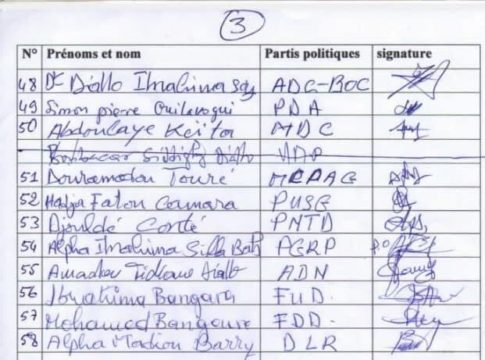 3
N° Prénoms et nom Partis politiques signature
48 Dr Diallo Ibrahima ADC-BOC
49 Simon pierre PDA
50 Abdoulaye Keïta MDC
51 Touré
52 Hadja Faton Camara PUSG
53 Djouldé Conté PNTD
54 Alpha Ibrahima Silla Bah PGRP
55 Amadou Tidiane Diallo ADN
56 Ibrahima Bangoura FUD.
57 Mohamed Bangoura FDD.
58 Alpha Madiou Barry DLR